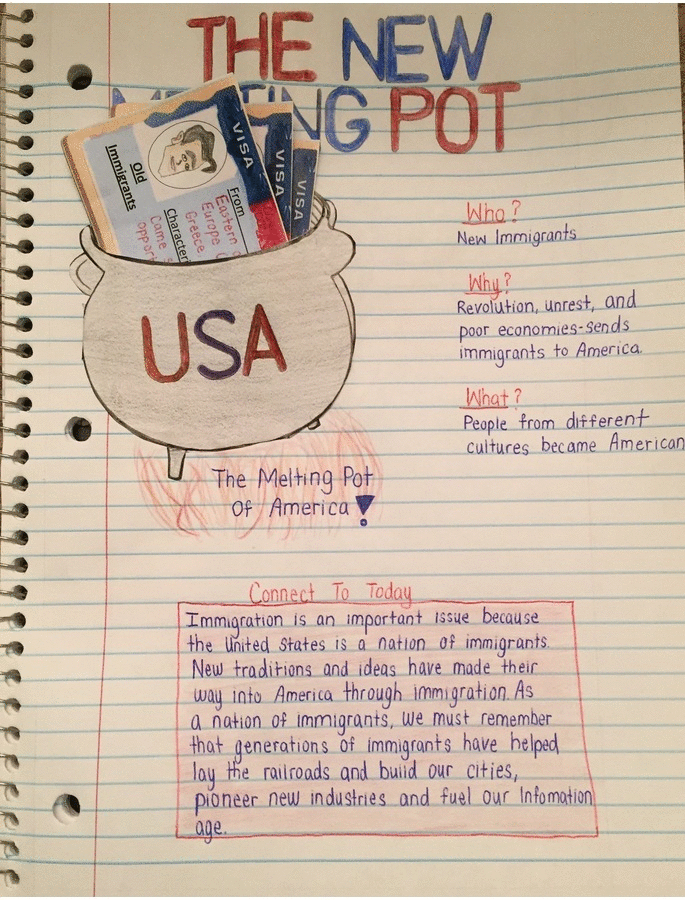 THE NEW
MELTING POT
VISA
VISA
VISA
Old
Immigrants
From
Eastern
Europe
Greece
Character
Came
oppor
USA
The Melting Pot
Of America!
Who?
New Immigrants
Why?
Revolution, unrest, and
poor economies-sends
immigrants to America.
What?
People from different
cultures became American
Connect To Today
Immigration is an important issue because
the United States is a nation of immigrants.
New traditions and ideas have made their
way into America through immigration. As
a nation of immigrants, we must remember
that generations of immigrants have helped
lay the railroads and build our cities,
pioneer new industries and fuel our Infomation
age.